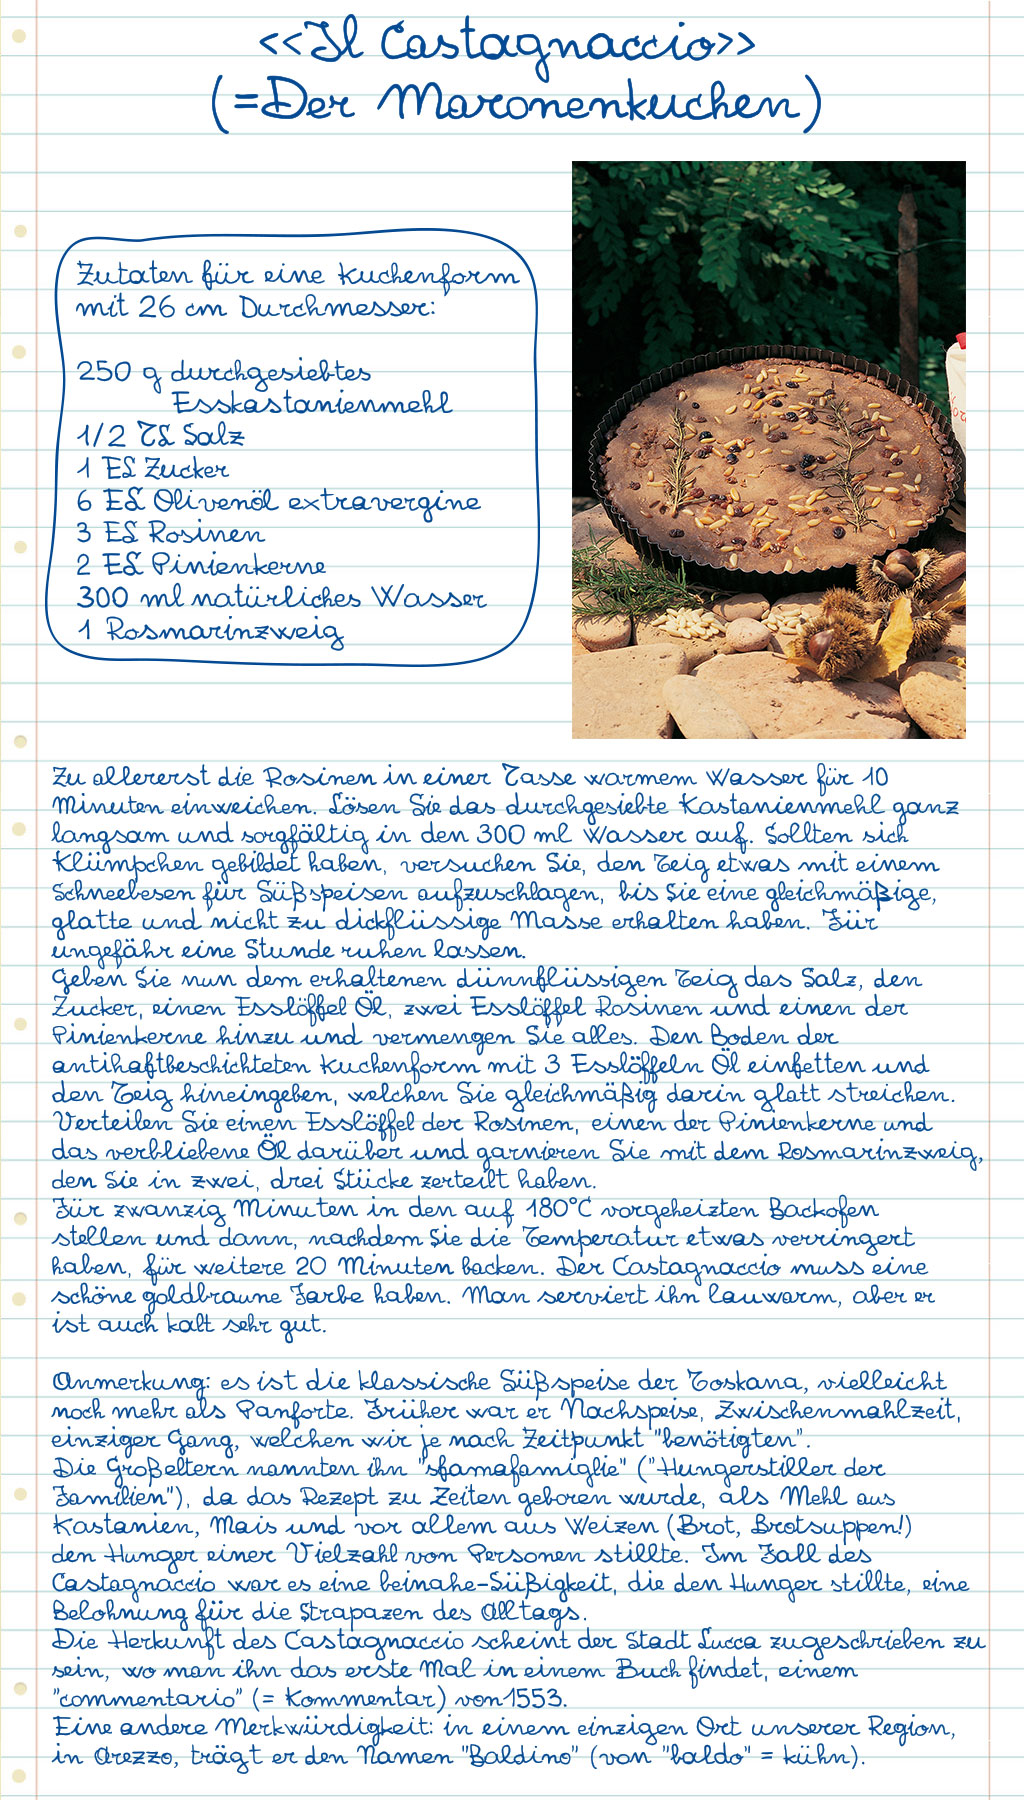 <<Il Castagnaccio>>
(=Der Maronenkuchen)
Zutaten für eine Kuchenform
mit 26 cm Durchmesser:
250 g durchgesiebtes
Esskastanienmehl
1/2 TL Salz
1 EL Zucker
6 EL Olivenöl extravergine
3 EL Rosinen
2 EL Pinienkerne
300 ml natürliches Wasser
1 Rosmarinzweig
Zu allererst die Rosinen in einer Tasse warmem Wasser für 10
Minuten einweichen. Lösen Sie das durchgesiebte Kastanienmehl ganz
langsam und sorgfältig in den 300 ml Wasser auf. Sollten sich
Klümpchen gebildet haben, versuchen Sie, den Teig etwas mit einem
Schneebesen für Süßspeisen aufzuschlagen, bis Sie eine gleichmäßige,
glatte und nicht zu dickflüssige Masse erhalten haben. Für
ungefähr eine Stunde ruhen lassen.
Geben Sie nun dem erhaltenen dünnflüssigen Teig das Salz, den
Zucker, einen Esslöffel Öl, zwei Esslöffel Rosinen und einen der
Pinienkerne hinzu und vermengen Sie alles. Den Boden der
antihaftbeschichteten Kuchenform mit 3 Esslöffeln Öl einfetten und
den Teig hineingeben, welchen Sie gleichmäßig darin glatt streichen.
Verteilen Sie einen Esslöffel der Rosinen, einen der Pinienkerne und
das verbliebene Öl darüber und garnieren Sie mit dem Rosmarinzweig,
den Sie in zwei, drei Stücke zerteilt haben.
Für zwanzig Minuten in den auf 180°C vorgeheizten Backofen
stellen und dann, nachdem Sie die Temperatur etwas verringert
haben, für weitere 20 Minuten backen. Der Castagnaccio muss eine
schöne goldbraune Farbe haben. Man serviert ihn lauwarm, aber er
ist auch kalt sehr gut.
Anmerkung: es ist die klassische Süßspeise der Toskana, vielleicht
noch mehr als Panforte. Früher war er Nachspeise, Zwischenmahlzeit,
einziger Gang, welchen wir je nach Zeitpunkt "benötigten".
Die Großeltern nannten ihn "sfamafamiglie" ("Hungerstiller der
Familien"), da das Rezept zu Zeiten geboren wurde, als Mehl aus
Kastanien, Mais und vor allem aus Weizen (Brot, Brotsuppen!)
den Hunger einer Vielzahl von Personen stillte. Im Fall des
Castagnaccio war es eine beinahe-Süßigkeit, die den Hunger stillte, eine
Belohnung für die Strapazen des Alltags.
Die Herkunft des Castagnaccio scheint der Stadt Lucca zugeschrieben zu
sein, wo man ihn das erste Mal in einem Buch findet, einem
"commentario" (= Kommentar) von 1553.
Eine andere Merkwürdigkeit: in einem einzigen Ort unserer Region,
in Arezzo, trägt er den Namen "Baldino" (von "baldo" = kühn).